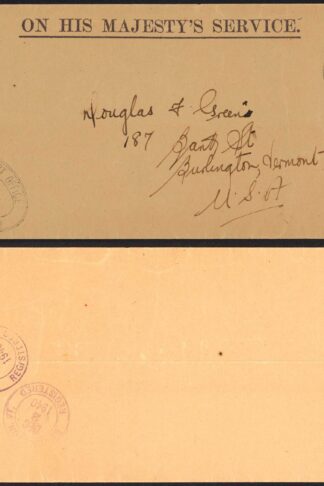 ON HIS MAJESTY'S SERVICE.
Douglas F Greene
187
Bank St
Burlington, Vermont
U.S.A
REGISTERED
194
REGISTERED
1940